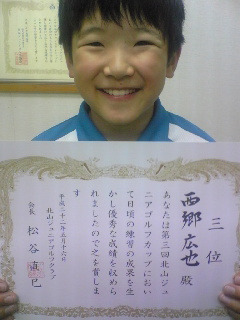 三位
西郷広也 殿
あなたは第三回北山ジュ
ニアゴルフカップにおい
て日頃の練習の成果を生
かし優秀な成績を収めら
れましたので之を賞しま
す
平成二十二年五月十六日
北山ジュニアゴルフクラブ
会長 松谷直巳